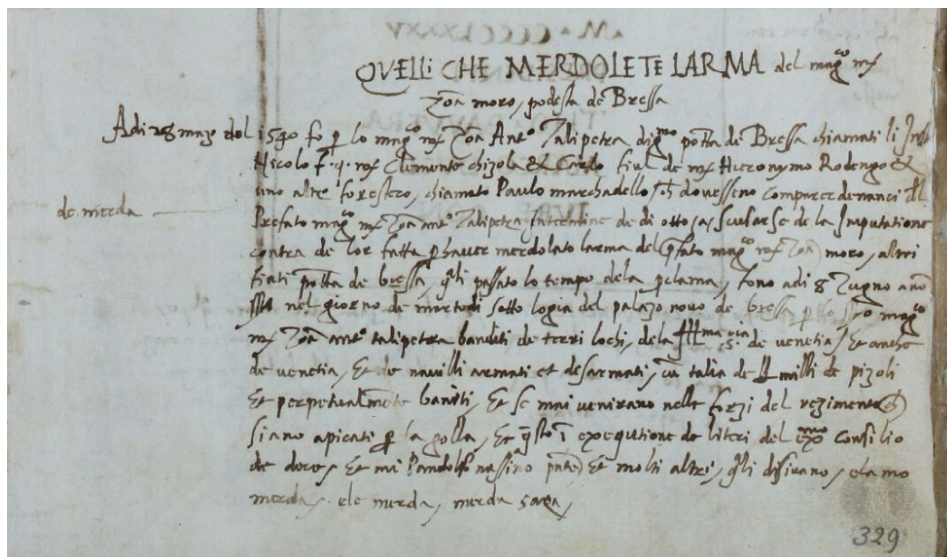 QVELLI CHE MERDOLETE LARMA del mag.co mr
Zoã moro, podesta de Bressa
Adi 28 mazo del 1540 fo p lo mag.co mr Zoã Ant.o Zalipetra dig.mo potta di Bressa chiamati li
Nicolo f. q. mr Clemente chizola & fiul de mr Hieronymo Rodengo &
uno altro forestero, chiamato Paulo marchadello, ch dovesseno comparer denanci al
de merda
Prefato mag.co mr Zoã ant.o Zalipetra de di otto scusarse de la Imputatione
contra de lor fatta p haver merdolato larma del pfato mag.co mr Zoã moro, altri
fiati potta de bressa, qli passato lo tempo dela pclama, fono adi 8 Zugno ano
nel giorno de martedi sotto logia del palazo novo de bressa p mag.co
mr Zoã ant.o talipetra banditi de terri lochi, dela Ill.ma S.ria de venetia, Et anche
de venetia, Et de navilli armati et desarmati, cũ talia de milli de pizoli
Et perpetualmẽte banditi, Et se mai venirano nelle forzi del rezimento
siano apicati p la golla, Et qsto ĩ exequtione de literi del consilio
de dece, Et mi Pandolfo nassino pnte, Et molti altri, qli disivano, elamo
merda, ele merda, merda
329